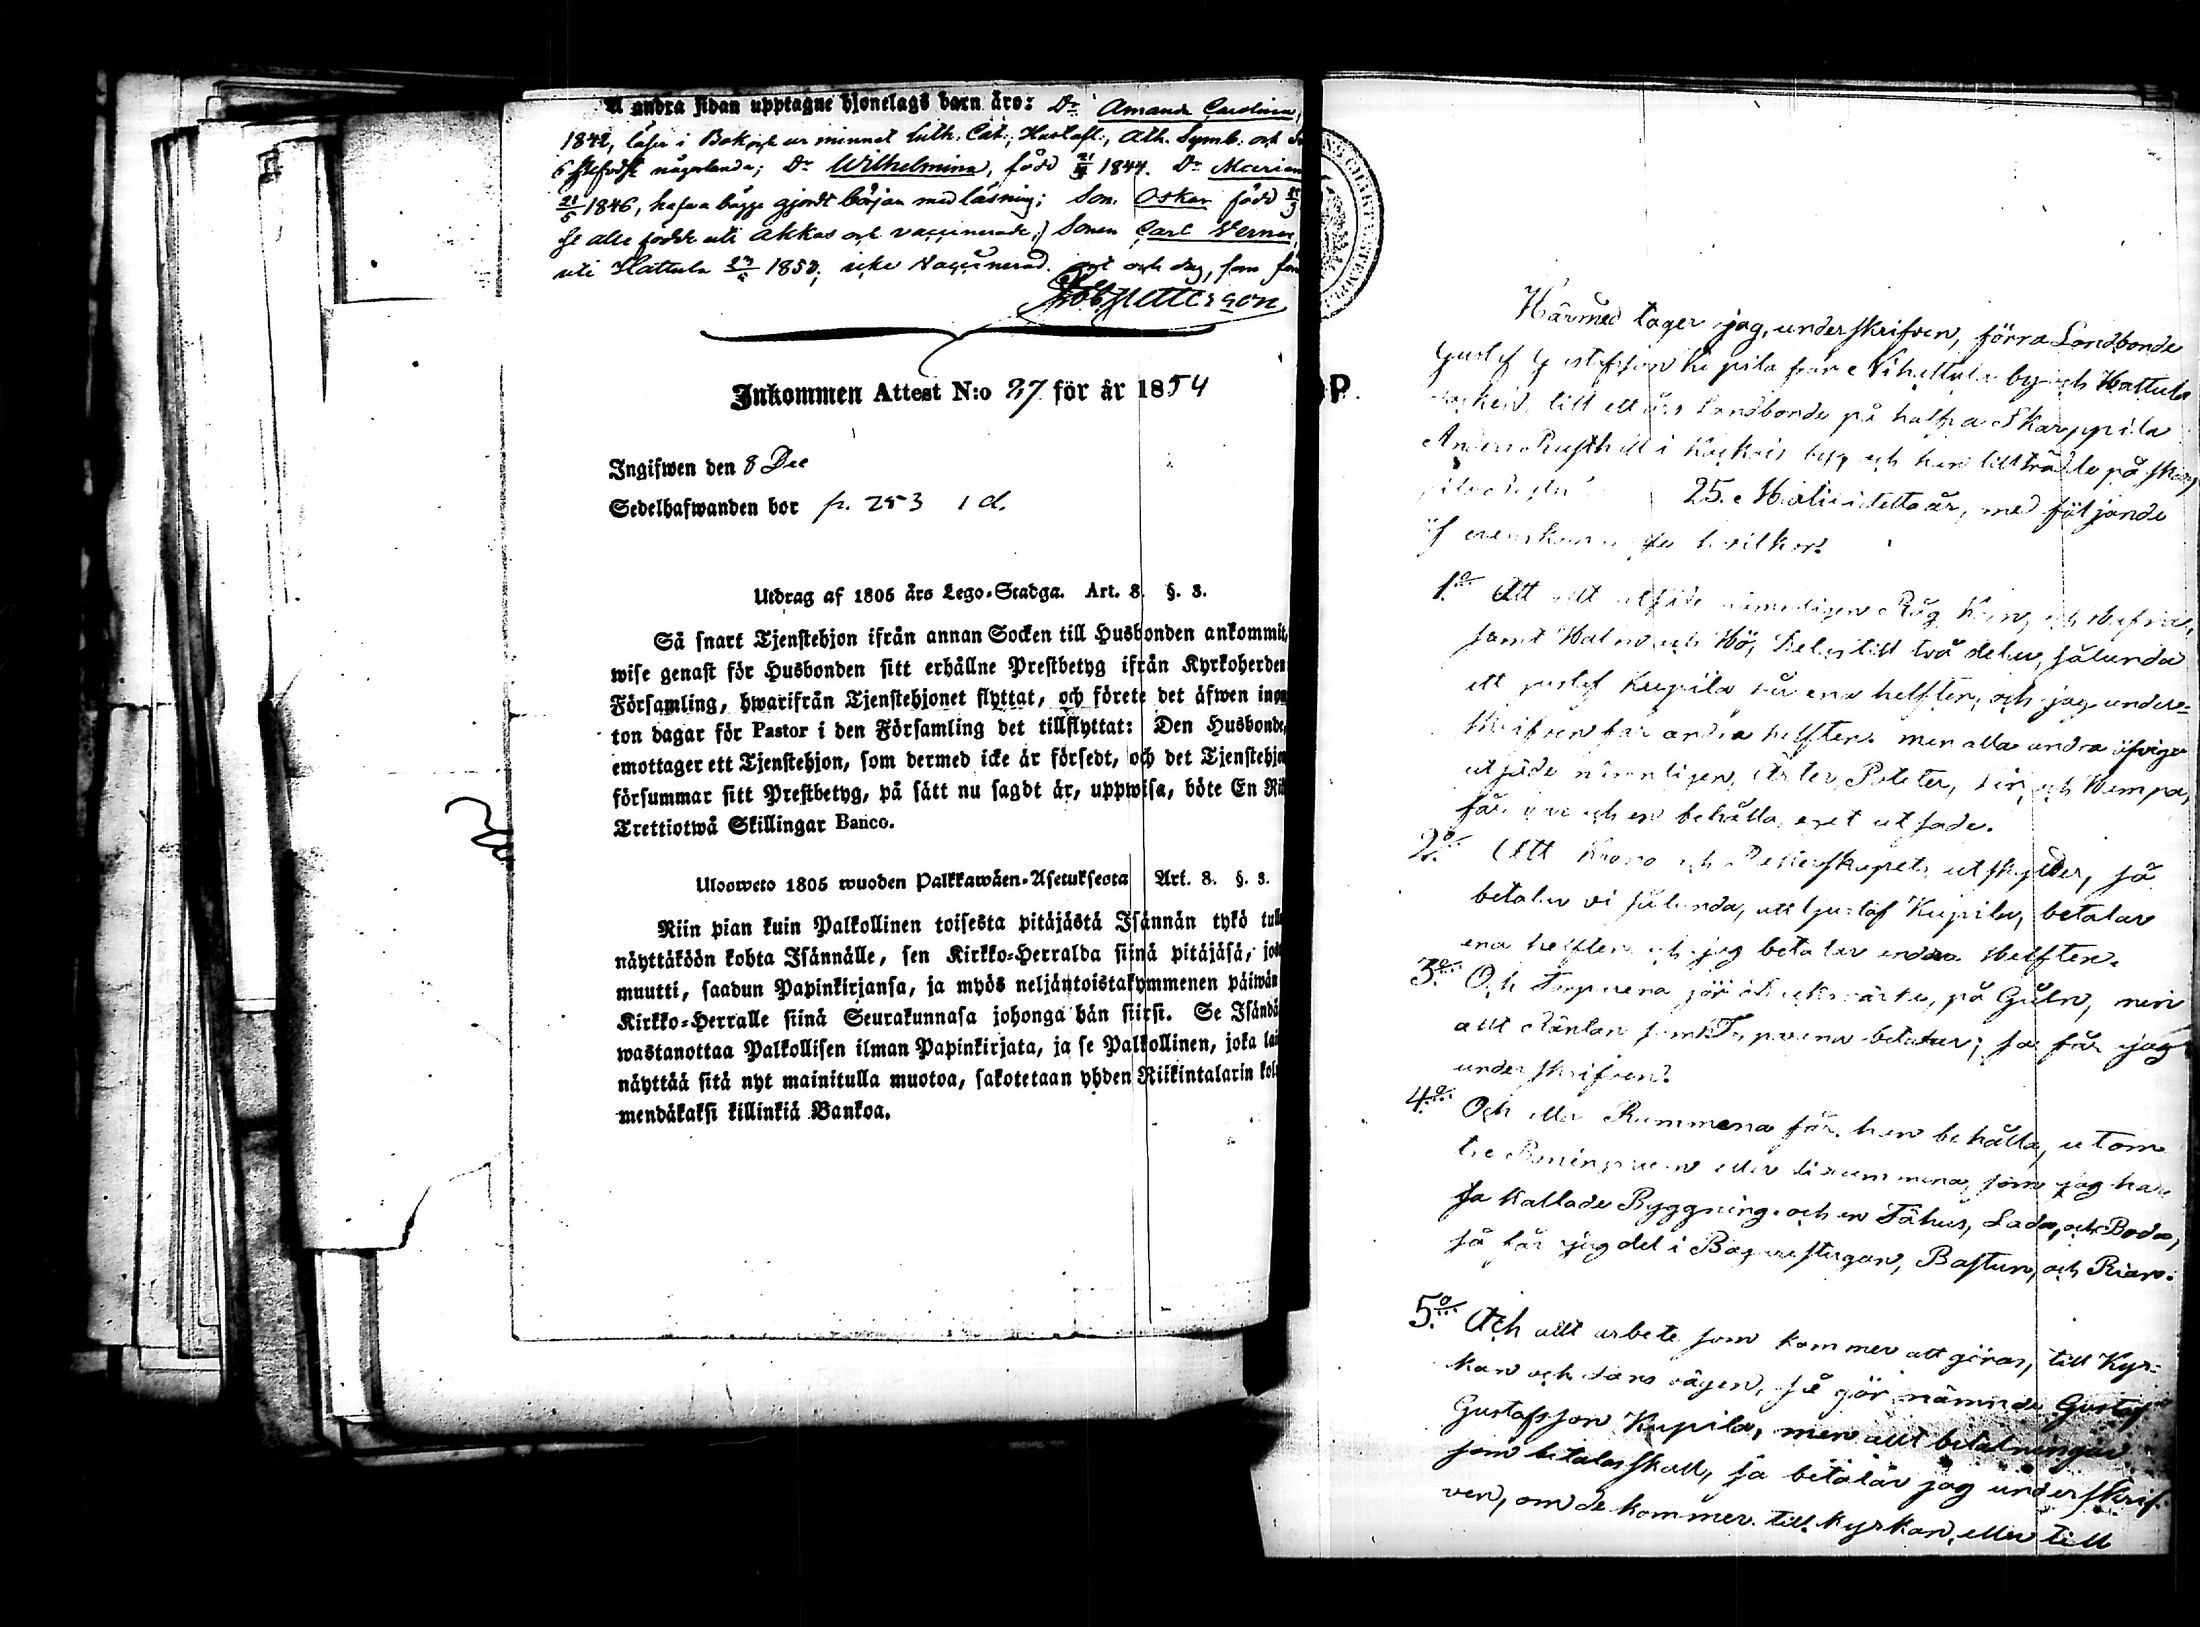 å andra sidan upptagne hjonelags barn äro: Dr Amanda Carolina,
1842, läser i Bok och ur minnet Luth. Cat., Hustafl., Ath. Symb. och
någorlunda; Dr Wilhelmina, född 1844. Dr Maria
1846, hafva bägge gjordt början med läsning; Son. Oskar född
alle födde uti Akkas och vaccinerade;) Sonen Carl Verner,
uti Hattula 1853; icke Vaccinerad. ort och dag, som
Inkommen Attest N:o 37 för år 1854
Ingifwen den 8 Dec
Sedelhafwanden bor p. 253 1 d.
Utdrag af 1805 års Lego-Stadga. Art. 8. §. 3.
Så snart Tjenstehjon ifrån annan Socken till Husbonden ankommit,
wise genast för Husbonden sitt erhållne Prestbetyg ifrån Kyrkoherden
Församling, hwarifrån Tjenstehjonet flyttat, och förete det äfwen inom
ton dagar för Pastor i den Församling det tillflyttat: Den Husbonde,
emottager ett Tjenstehjon, som dermed icke är försedt, och det Tjenstehjon
försummar sitt Prestbetyg, på sätt nu sagdt är, uppwisa, böte En
Trettiotwå Skillingar Banco.
Ulosweto 1805 wuoden Palkkawäen-Asetuksesta Art. 8. §. 3.
Niin pian kuin Palkollinen toisesta pitäjästä Isännän tykö
näyttäköön kohta Isännälle, sen Kirkko-Herralda siinä pitäjäsä,
muutti, saadun Papinkirjansa, ja myös neljäntoistakymmenen päiwän
Kirkko-Herralle siinä Seurakunnasa johonga hän siirsi. Se Isändä
wastanottaa Palkollisen ilman Papinkirjata, ja se Palkollinen, joka
näyttää sitä nyt mainitulla muotoa, sakotetaan yhden Riikintalarin
mendäkaksi killinkiä Bankoa.
Härmed tager jag, underskrifven, förra Landbonde
Gustaf Gustafsson Kupila från Nihattula by och Hattula
socken, till ett års Landbonde på halfva Skarppila
i by och han tillträde på
25. i detta år, med följande
1:o Att allt utsäde nämnligen Råg Korn, och Hafra,
samt Halm och Hö, delas till två delar, sålunda
att Gustaf Kupila får ena helften, och jag under-
skrifven får andra helften. men alla andra öfriga
utsäde nämnligen, Ärter, Poteter, Lin, och Hampa,
får behålla eget utsäde.
2:o Att Krono och utskylder, så
betalar vi sålunda, att Gustaf Kupila, betalar
ena helften och jag betalar andra Helften.
3:o Och Torparena gör på Gården, men
allt Räntan som Torparena betalar; så får jag
underskrifven.
4:o Och alla Rummena får han behålla, utom
som jag har
så kallade Byggning. och en Fähus, Lada, och Boda,
så får jag del i Bagarestugan, Bastun, och Rian.
5:o Och allt arbete som kommer att göras, till Kyr-
kan och vägen, så gör nämnde Gustaf
Gustafsson Kupila, men allt betalningar
som betalas skall, så betalar jag underskrif-
ven, om de kommer till kyrkan, eller till